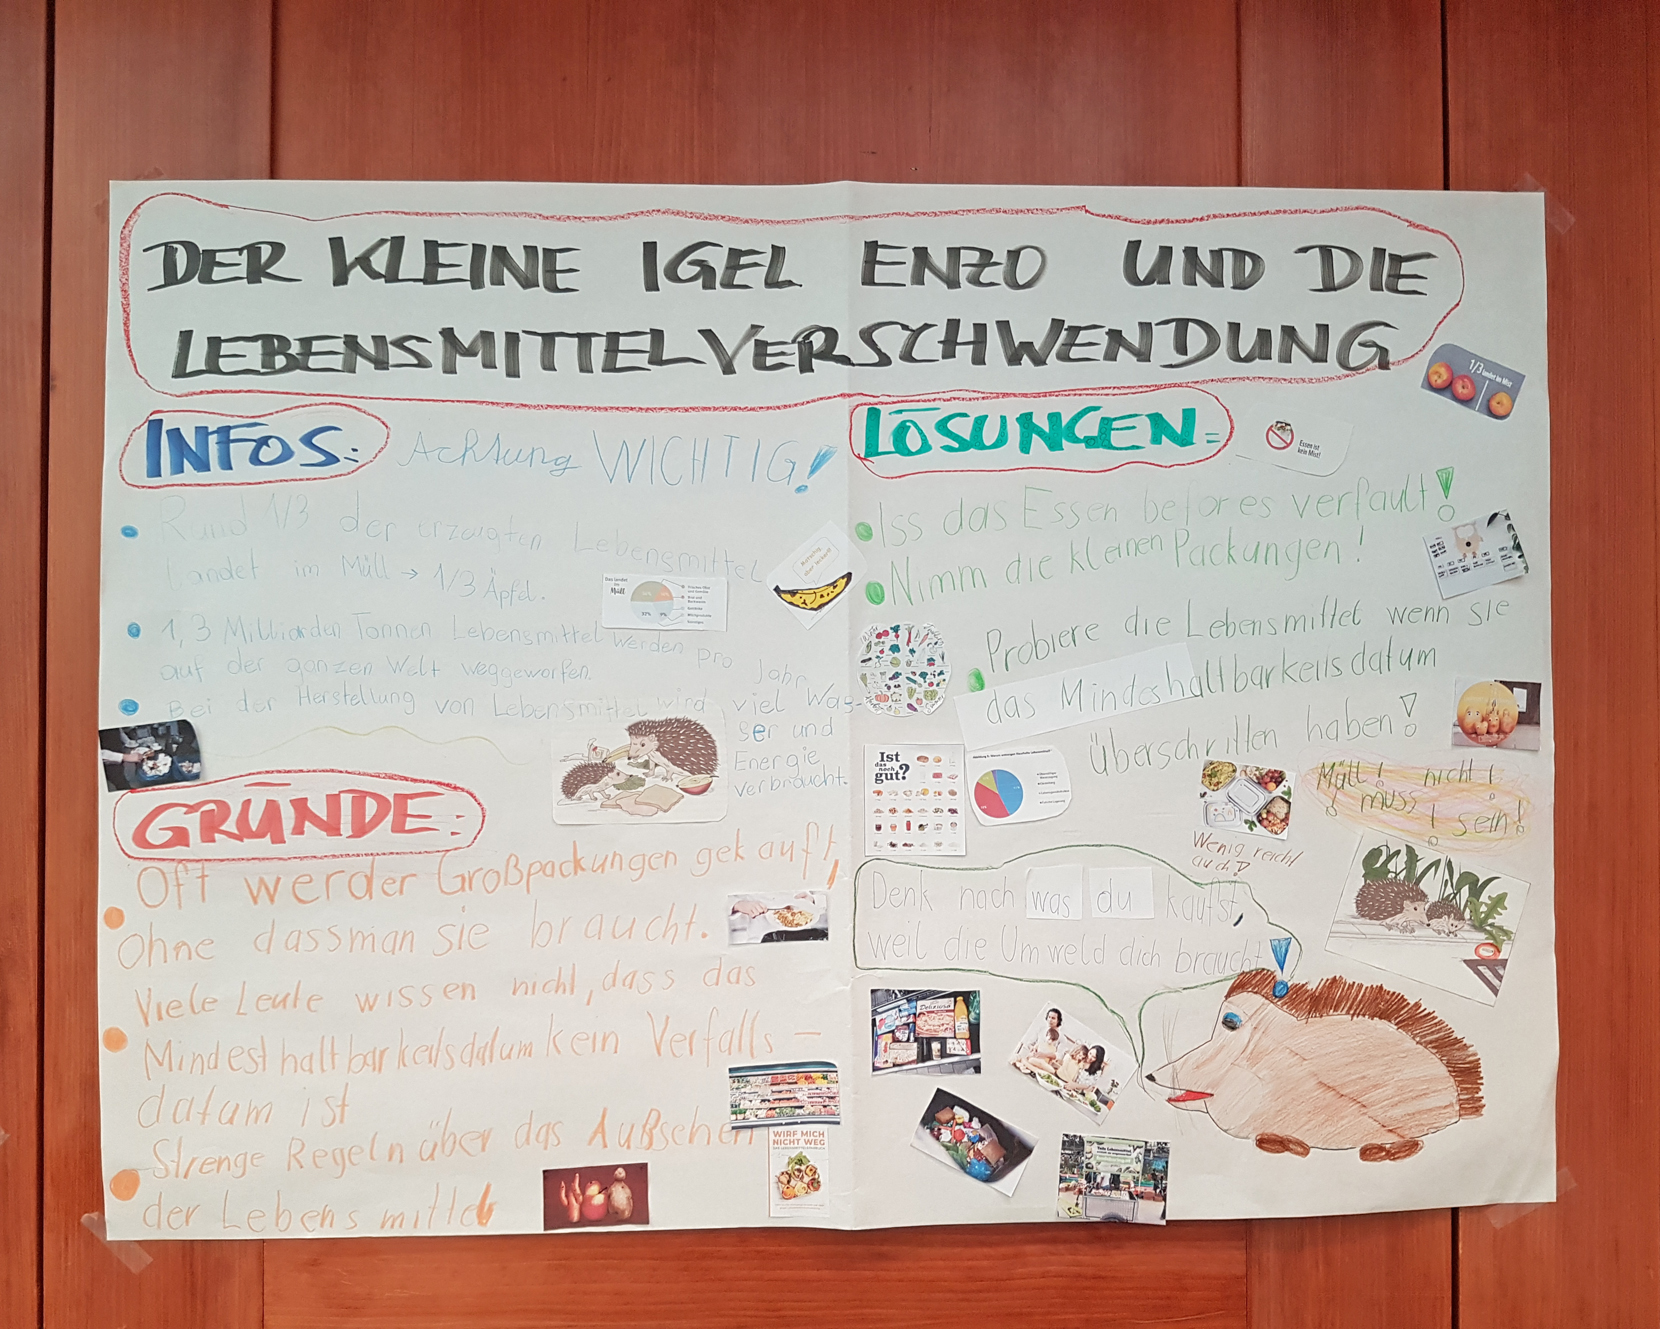 DER KLEINE IGEL ENZO UND DIE
LEBENSMITTELVERSCHWENDUNG
INFOS:
Achtung WICHTIG!
Rund 1/3 der erzeigten Lebensmittel
Landet im Müll → 1/3 Äpfel.
Das landet
im
Müll
1,3 Milliarden Tonnen Lebensmittel werden pro Jahr
auf der ganzen Welt weggeworfen.
Bei der Herstellung von Lebensmittel wird viel Was-
ser und
Energie
verbraucht.
GRÜNDE:
Oft werder Großpackungen gekauft,
Ohne dassman sie braucht.
Viele Leute wissen nicht, dass das
Mindesthaltbarkeitsdatum kein Verfalls-
datum ist
Strenge Regeln über das Außsehen
der Lebensmittel
WIRF MICH
NICHT WEG
LÖSUNGEN:
1/3 landet im Mist
Essen ist
kein Mist!
Iss das Essen befor es verfault!
Nimm die kleinen Packungen!
Probiere die Lebensmittel wenn sie
das Mindeshaltbarkeitsdatum
überschritten haben!
Ist
das
noch
gut?
Müll! nicht!
muss
! sein!
Wenig reicht
auch!
Denk nach was du kaufst,
weil die Umweld dich braucht!